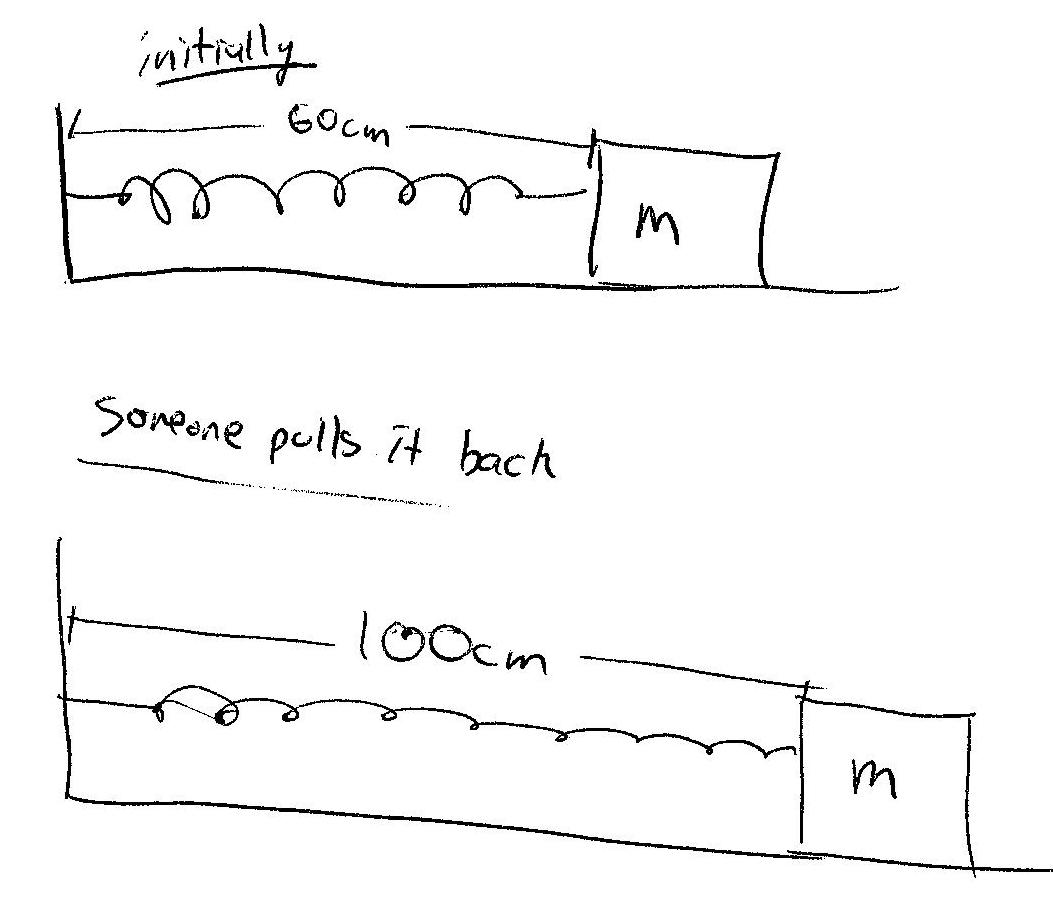 initially
60cm
m
Someone pulls it back
100cm
m